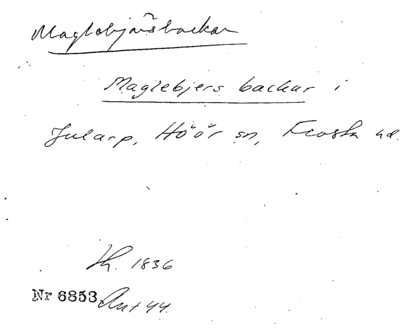 Maglebjärsbackar
Maglebjers backar i
Jularp, Höör sn, Frosta hd.
Th. 1836
Nr 6853 Ant 44.